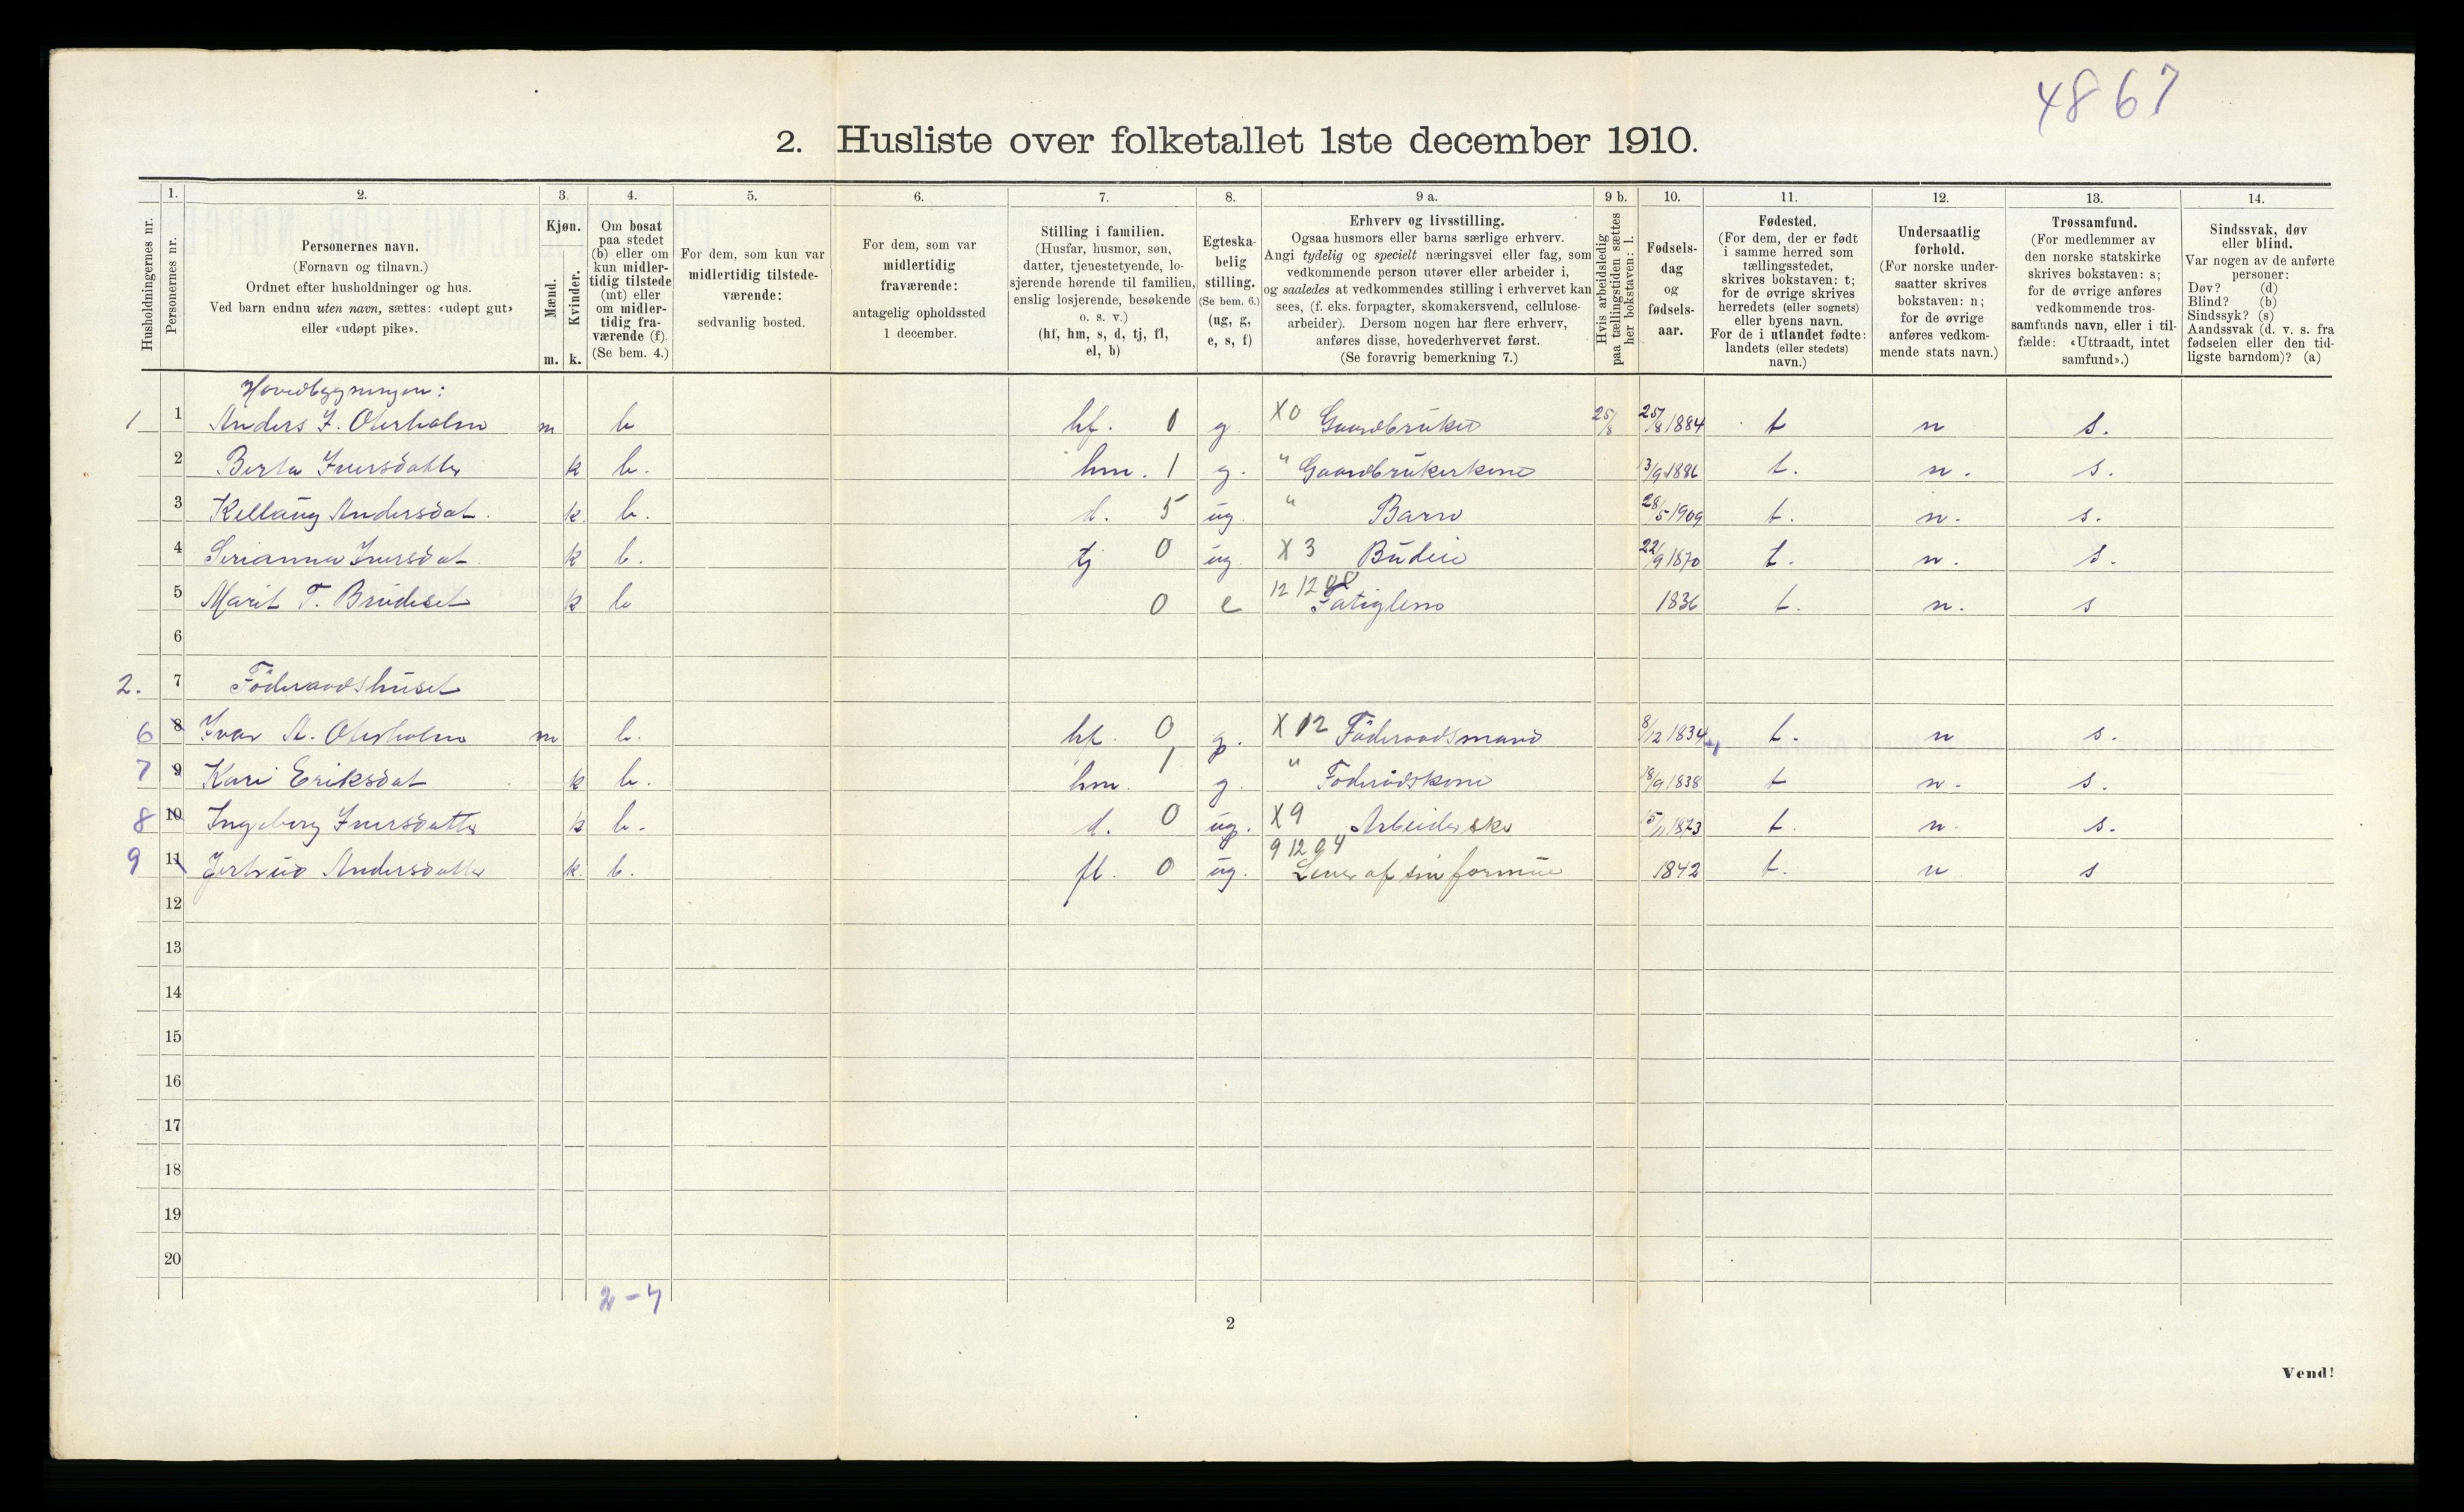 4867
2. Husliste over folketallet 1ste december 1910.
Husholdningernes nr.
1. Personernes nr.
2.
Personernes navn.
(Fornavn og tilnavn.)
Ordnet efter husholdninger og hus.
Ved barn endnu uten navn, sættes: «udøpt gut»
eller «udøpt pike».
3.
Kjøn.
Mænd. Kvinder.
m. k.
4.
Om bosat
paa stedet
(b) eller om
kun midler-
tidig tilstede
(mt) eller
om midler-
tidig fra-
værende (f).
(Se bem. 4.)
5.
For dem, som kun var
midlertidig tilstede-
værende:
sedvanlig bosted.
6.
For dem, som var
midlertidig
fraværende:
antagelig opholdssted
1 december.
7.
Stilling i familien.
(Husfar, husmor, søn,
datter, tjenestetyende, lo-
sjerende hørende til familien,
enslig losjerende, besøkende
o. s. v.)
(hf, hm, s, d, tj, fl,
el, b)
8.
Egteska-
belig
stilling.
(Se bem. 6.)
(ug, g,
e, s, f)
9 a.
Erhverv og livsstilling.
Ogsaa husmors eller barns særlige erhverv.
Angi tydelig og specielt næringsvei eller fag, som
vedkommende person utøver eller arbeider i,
og saaledes at vedkommendes stilling i erhvervet kan
sees, (f. eks. forpagter, skomakersvend, cellulose-
arbeider). Dersom nogen har flere erhverv,
anføres disse, hovederhvervet først.
(Se forøvrig bemerkning 7.)
9 b.
Hvis arbeidsledig
paa tællingstiden sættes
her bokstaven: l.
10.
Fødsels-
dag
og
fødsels-
aar.
11.
Fødested.
(For dem, der er født
i samme herred som
tællingsstedet,
skrives bokstaven: t;
for de øvrige skrives
herredets (eller sognets)
eller byens navn.
For de i utlandet fødte:
landets (eller stedets)
navn.)
12.
Undersaatlig
forhold.
(For norske under-
saatter skrives
bokstaven: n;
for de øvrige
anføres vedkom-
mende stats navn.)
13.
Trossamfund.
(For medlemmer av
den norske statskirke
skrives bokstaven: s;
for de øvrige anføres
vedkommende tros-
samfunds navn, eller i til-
fælde: «Uttraadt, intet
samfund».)
14.
Sindssvak, døv
eller blind.
Var nogen av de anførte
personer:
Døv? (d)
Blind? (b)
Sindssyk? (s)
Aandssvak (d. v. s. fra
fødselen eller den tid-
ligste barndom)? (a)
Hovedbygningen:
1 1 Anders I. Oterholm m b hf. 0 g X0 Gaardbruker 25/8 25/8 1884 t n s.
2 Berta Iversdatter k b. hm. 1 g. " Gaardbrukerkone 13/9 1886 t. n. s.
3 Kellaug Andersdat. k. b. d. 5 ug. " Barn 28/5 1909 t. n. s.
4 Serianna Iversdat. k b. tj 0 ug. X 3 Budeie 22/9 1870 t. n. s.
5 Marit T. Brudeset k b 0 e 12 1208 Fatiglem 1836 t. n. s
6
2. 7 Föderaadshuset
6 8 Ivar A. Oterholm m b. hf. 0 g. X 12 Föderaadsmand 8/12 1834 t. n s.
7 9 Kari Eriksdat k b. hm. 1 g. " Föderådskone 18/9 1838 t n. s.
8 10 Ingeborg Iversdatter k b. d. 0 ug. X9 Arbeiderske 15/11 1873 t. n. s.
9 11 Jertrud Andersdatter k. b. fl. 0 ug. 9 12 04 Lever af sin formue 1842 t. n s
12
13
14
15
16
17
18
19
20
2-7
2
Vend!